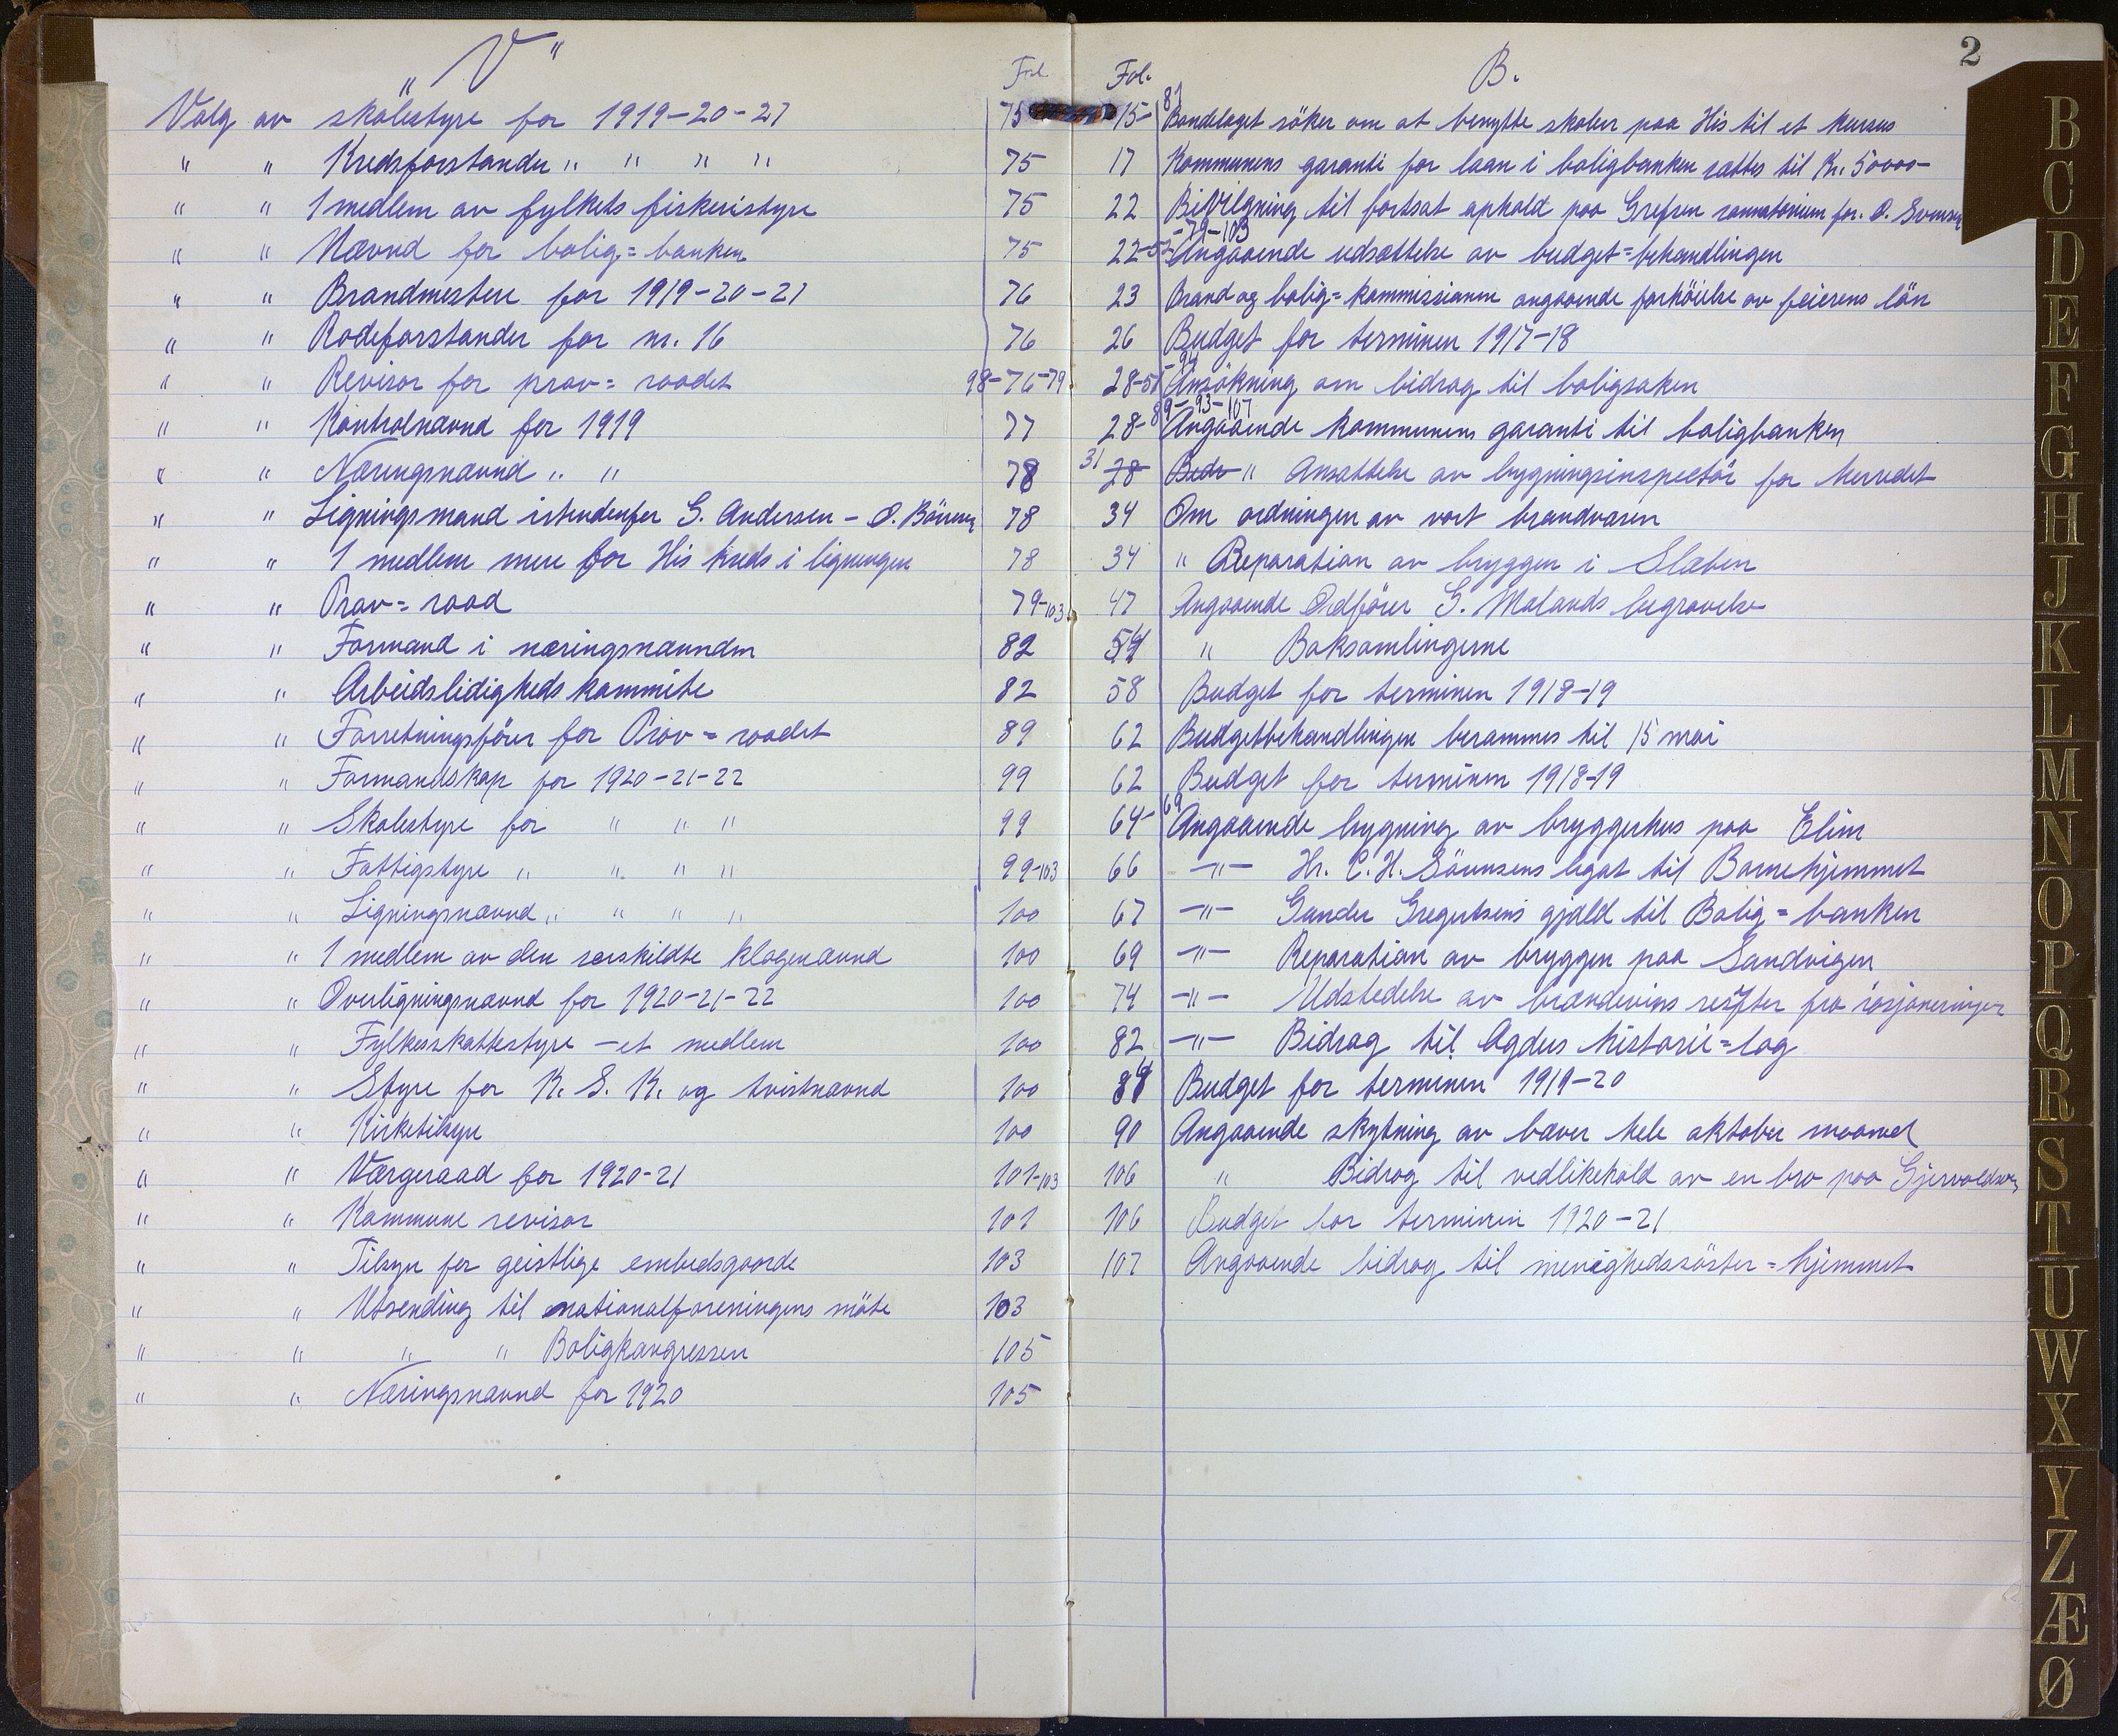 „ V “
Fol
Valg av skolestyre for 1919-20-21 75
" " Kredsforstander " " " " 75
" " 1 medlem av fylkets fiskeristyre 75
" " Nævnd for bolig=banken 75
" " Brandmestere for 1919-20-21 76
" " Rodeforstander for nr. 16 76
" " Revisor for prov=raadet 98-76-79
" " Kontrolnævnd for 1919 77
" " Næringsnævnd " " 78
" " Ligningsmand istendenfor G. Andersen - O. 78
" " 1 medlem mere for His kreds i ligningen 78
" " Prov=raad 79-103
" " Formand i næringsnævnden 82
" " Arbeidslidigheds kommite 82
" " Forretningsfører for Prov=raadet 89
" " Formandskap for 1920-21-22 99
" " Skolestyre for " " " 99
" " Fattigstyre " " " " 99-103
" " Ligningsnævnd " " " " 100
" " 1 medlem av den særskildte klagenævnd 100
" " Overligningsnævnd for 1920-21-22 100
" " Fylkesskattestyre - et medlem 100
" " Styre for K. S. K. og tvistnævnd 100
" " Kirketilsyn 100
" " Værgeraad for 1920-21 101-103
" " Kommune revisor 101
" " Tilsyn for geistlige embedsgaarde 103
" " Utsending til nationalforeningens møte 103
" " " " Boligkongressen 105
" " Næringsnævnd for 1920 105
2
Fol. B.
15-81 Bondelaget søker om at benytte skolen paa His til et kursus
17 Kommunens garanti for laan i boligbanken sættes til Kr. 50000-
22 Bevilgning til fortsat ophold paa Grefsen sannatorium for. O.
22-52-79-103 Angaaende udsættelse av budget=behandlingen
23 Brand og bolig=kommissionen angaaende forhøielse av feierens løn
26 Budget for terminen 1917-18
28-51-94 Ansøkning om bidrag til boligsaken
28-89-93-107 Angaaende kommunens garanti til boligbanken
31 28 Bedr " Ansættelse av bygningsinspectør for herredet
34 Om ordningen av vort brandvæsen
34 " Reparation av bryggen i Slæben
47 Angaaende Ordfører G. Malands begravelse
54 " Boksamlingerne
58 Budget for terminen 1918-19
62 Budgetbehandlingen berammes til 15 mai
62 Budget for terminen 1918-19
64-69 Angaaende bygning av bryggerhus paa Elim
66 -"- Hr. C. H. Sørensens legat til Barnehjemmet
67 -"- Gunder Gregertsens gjæld til Bolig=banken
69 -"- Reparation av bryggen paa Sandvigen
74 -"- Udstedelse av brændevins resepter fra
82 -"- Bidrag til Agders historie=lag
84 Budget for terminen 1919-20
90 Angaaende skytning av bæver hele oktober maaned
106 " Bidrag til vedlikehold av en bro paa
106 Budget for terminen 1920-21
107 Angaaende bidrag til menighedssøster=hjemmet
B
C
D
E
F
G
H
J
K
L
M
N
O
P
Q
R
S
T
U
W
X
Y
Z
Æ
Ø